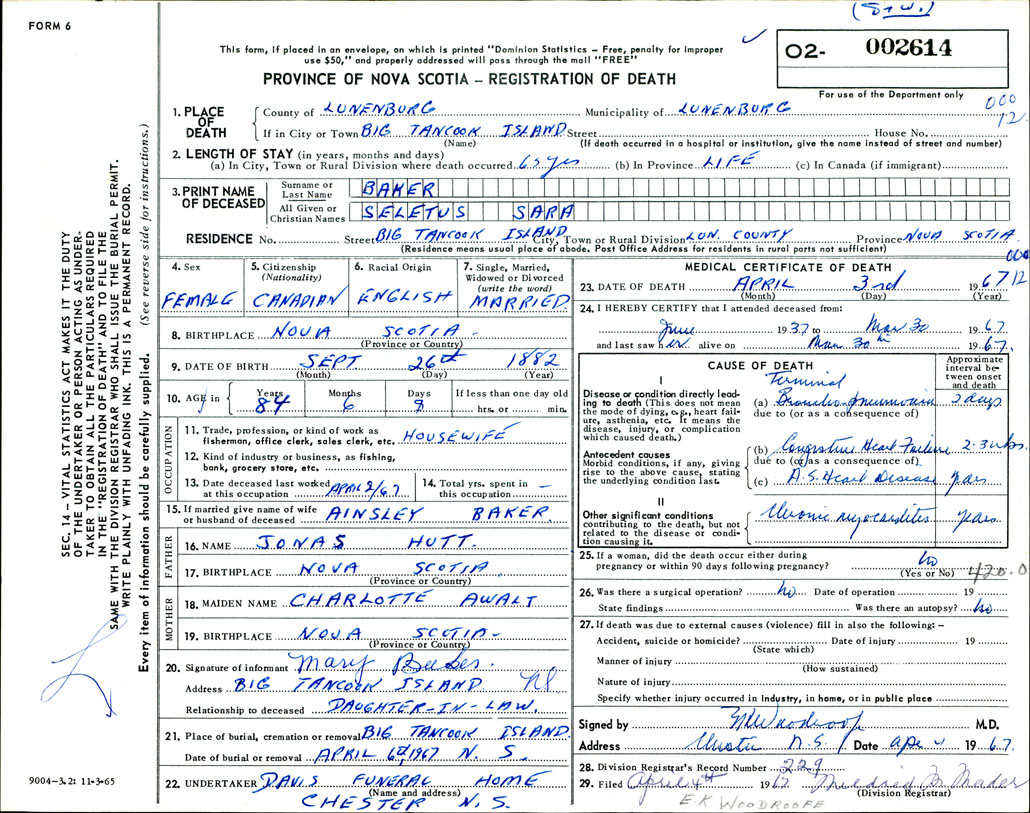 (S+W.)
FORM 6
This form, if placed in an envelope, on which is printed "Dominion Statistics – Free, penalty for improper
use $50," and properly addressed will pass through the mail "FREE"
PROVINCE OF NOVA SCOTIA – REGISTRATION OF DEATH
O2- 002614
For use of the Department only
000
12
1. PLACE OF DEATH County of LUNENBURG Municipality of LUNENBURG
If in City or Town BIG TANCOOK ISLAND Street House No.
(Name) (If death occurred in a hospital or institution, give the name instead of street and number)
2. LENGTH OF STAY (in years, months and days)
(a) In City, Town or Rural Division where death occurred 65 yrs (b) In Province LIFE (c) In Canada (if immigrant)
3. PRINT NAME OF DECEASED Surname or Last Name BAKER
All Given or Christian Names SELETUS SARA
RESIDENCE No. Street BIG TANCOOK ISLAND City, Town or Rural Division LUN. COUNTY Province NOVA SCOTIA
(Residence means usual place of abode. Post Office Address for residents in rural parts not sufficient)
000
4. Sex
FEMALE
5. Citizenship
(Nationality)
CANADIAN
6. Racial Origin
ENGLISH
7. Single, Married,
Widowed or Divorced
(write the word)
MARRIED
8. BIRTHPLACE NOVA SCOTIA –
(Province or Country)
9. DATE OF BIRTH SEPT 26th 1882
(Month) (Day) (Year)
10. AGE in Years Months Days If less than one day old
84 6 8 hrs. or min.
OCCUPATION
11. Trade, profession, or kind of work as
fisherman, office clerk, sales clerk, etc. HOUSEWIFE
12. Kind of industry or business, as fishing,
bank, grocery store, etc.
13. Date deceased last worked
at this occupation APRIL 2/67
14. Total yrs. spent in
this occupation –
15. If married give name of wife
or husband of deceased AINSLEY BAKER
FATHER
16. NAME JONAS HUTT.
17. BIRTHPLACE NOVA SCOTIA
(Province or Country)
MOTHER
18. MAIDEN NAME CHARLOTTE AWALT
19. BIRTHPLACE NOVA SCOTIA –
(Province or Country)
20. Signature of informant Mary
Address BIG TANCOOK ISLAND NS
Relationship to deceased DAUGHTER-IN-LAW.
21. Place of burial, cremation or removal BIG TANCOOK ISLAND
Date of burial or removal APRIL 6th, 1967 N. S.
22. UNDERTAKER DAVIS FUNERAL HOME
(Name and address)
CHESTER N.S.
MEDICAL CERTIFICATE OF DEATH
23. DATE OF DEATH APRIL 3rd 1967 12
(Month) (Day) (Year)
24. I HEREBY CERTIFY that I attended deceased from:
June 1937 to Mar 30 1967
and last saw her alive on Mar 30th 1967.
CAUSE OF DEATH
Approximate interval between onset and death
I
Disease or condition directly leading to death (This does not mean the mode of dying, e.g., heart failure, asthenia, etc. It means the disease, injury, or complication which caused death.)
Terminal
(a) Broncho pneumonia 2 days
due to (or as a consequence of)
Antecedent causes
Morbid conditions, if any, giving rise to the above cause, stating the underlying condition last.
(b) Congestive Heart Failure 2-3 wks
due to (or as a consequence of)
(c) A.S. Heart Disease years
II
Other significant conditions
contributing to the death, but not related to the disease or condition causing it.
Chronic myocarditis years
25. If a woman, did the death occur either during
pregnancy or within 90 days following pregnancy? no
(Yes or No) 420.0
26. Was there a surgical operation? no Date of operation 19
State findings Was there an autopsy? no
27. If death was due to external causes (violence) fill in also the following: –
Accident, suicide or homicide? Date of injury 19
(State which)
Manner of injury
(How sustained)
Nature of injury
Specify whether injury occurred in industry, in home, or in public place
Signed by EK Woodroofe M.D.
Address Chester N.S. Date Apr 4 1967.
28. Division Registrar's Record Number 229
29. Filed April 4th 1967 Mildred M. Mader
(Division Registrar)
E.K WOODROOFE
SEC. 14 – VITAL STATISTICS ACT MAKES IT THE DUTY
OF THE UNDERTAKER OR PERSON ACTING AS UNDER-
TAKER TO OBTAIN ALL THE PARTICULARS REQUIRED
IN THE "REGISTRATION OF DEATH" AND TO FILE THE
SAME WITH THE DIVISION REGISTRAR WHO SHALL ISSUE THE BURIAL PERMIT.
WRITE PLAINLY WITH UNFADING INK. THIS IS A PERMANENT RECORD.
Every item of information should be carefully supplied. (See reverse side for instructions.)
9004–3.2: 11-3-65